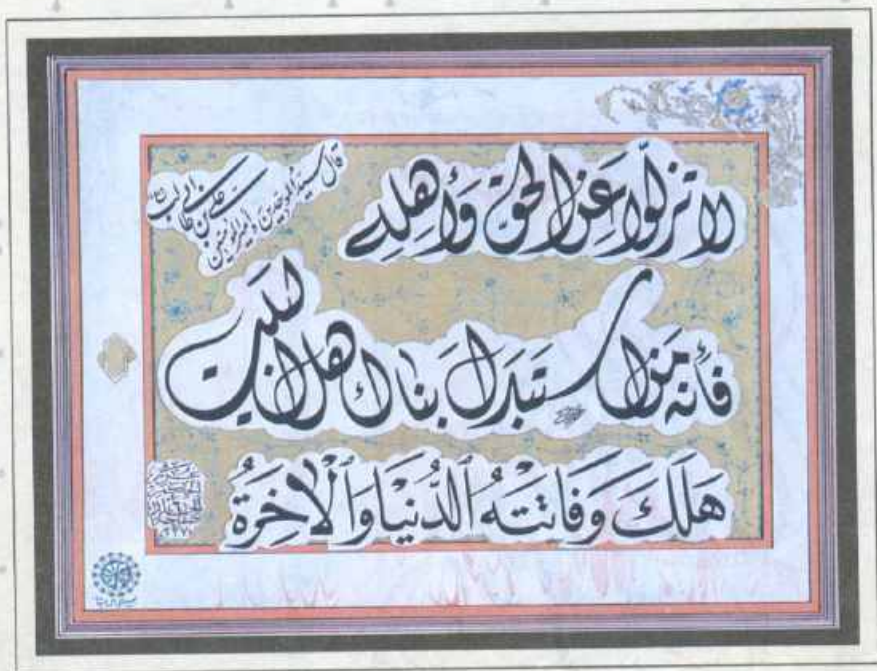 قال سيد الموحدين وأمير المؤمنين
علي بن أبي طالب
لا تزلّوا عن الحق وأهله
فأنه من استبدل بنا اهل البيت
هَلَكَ وَفَاتَتْهُ ٱلدُّنْيَا وَٱلْاخِرَةُ